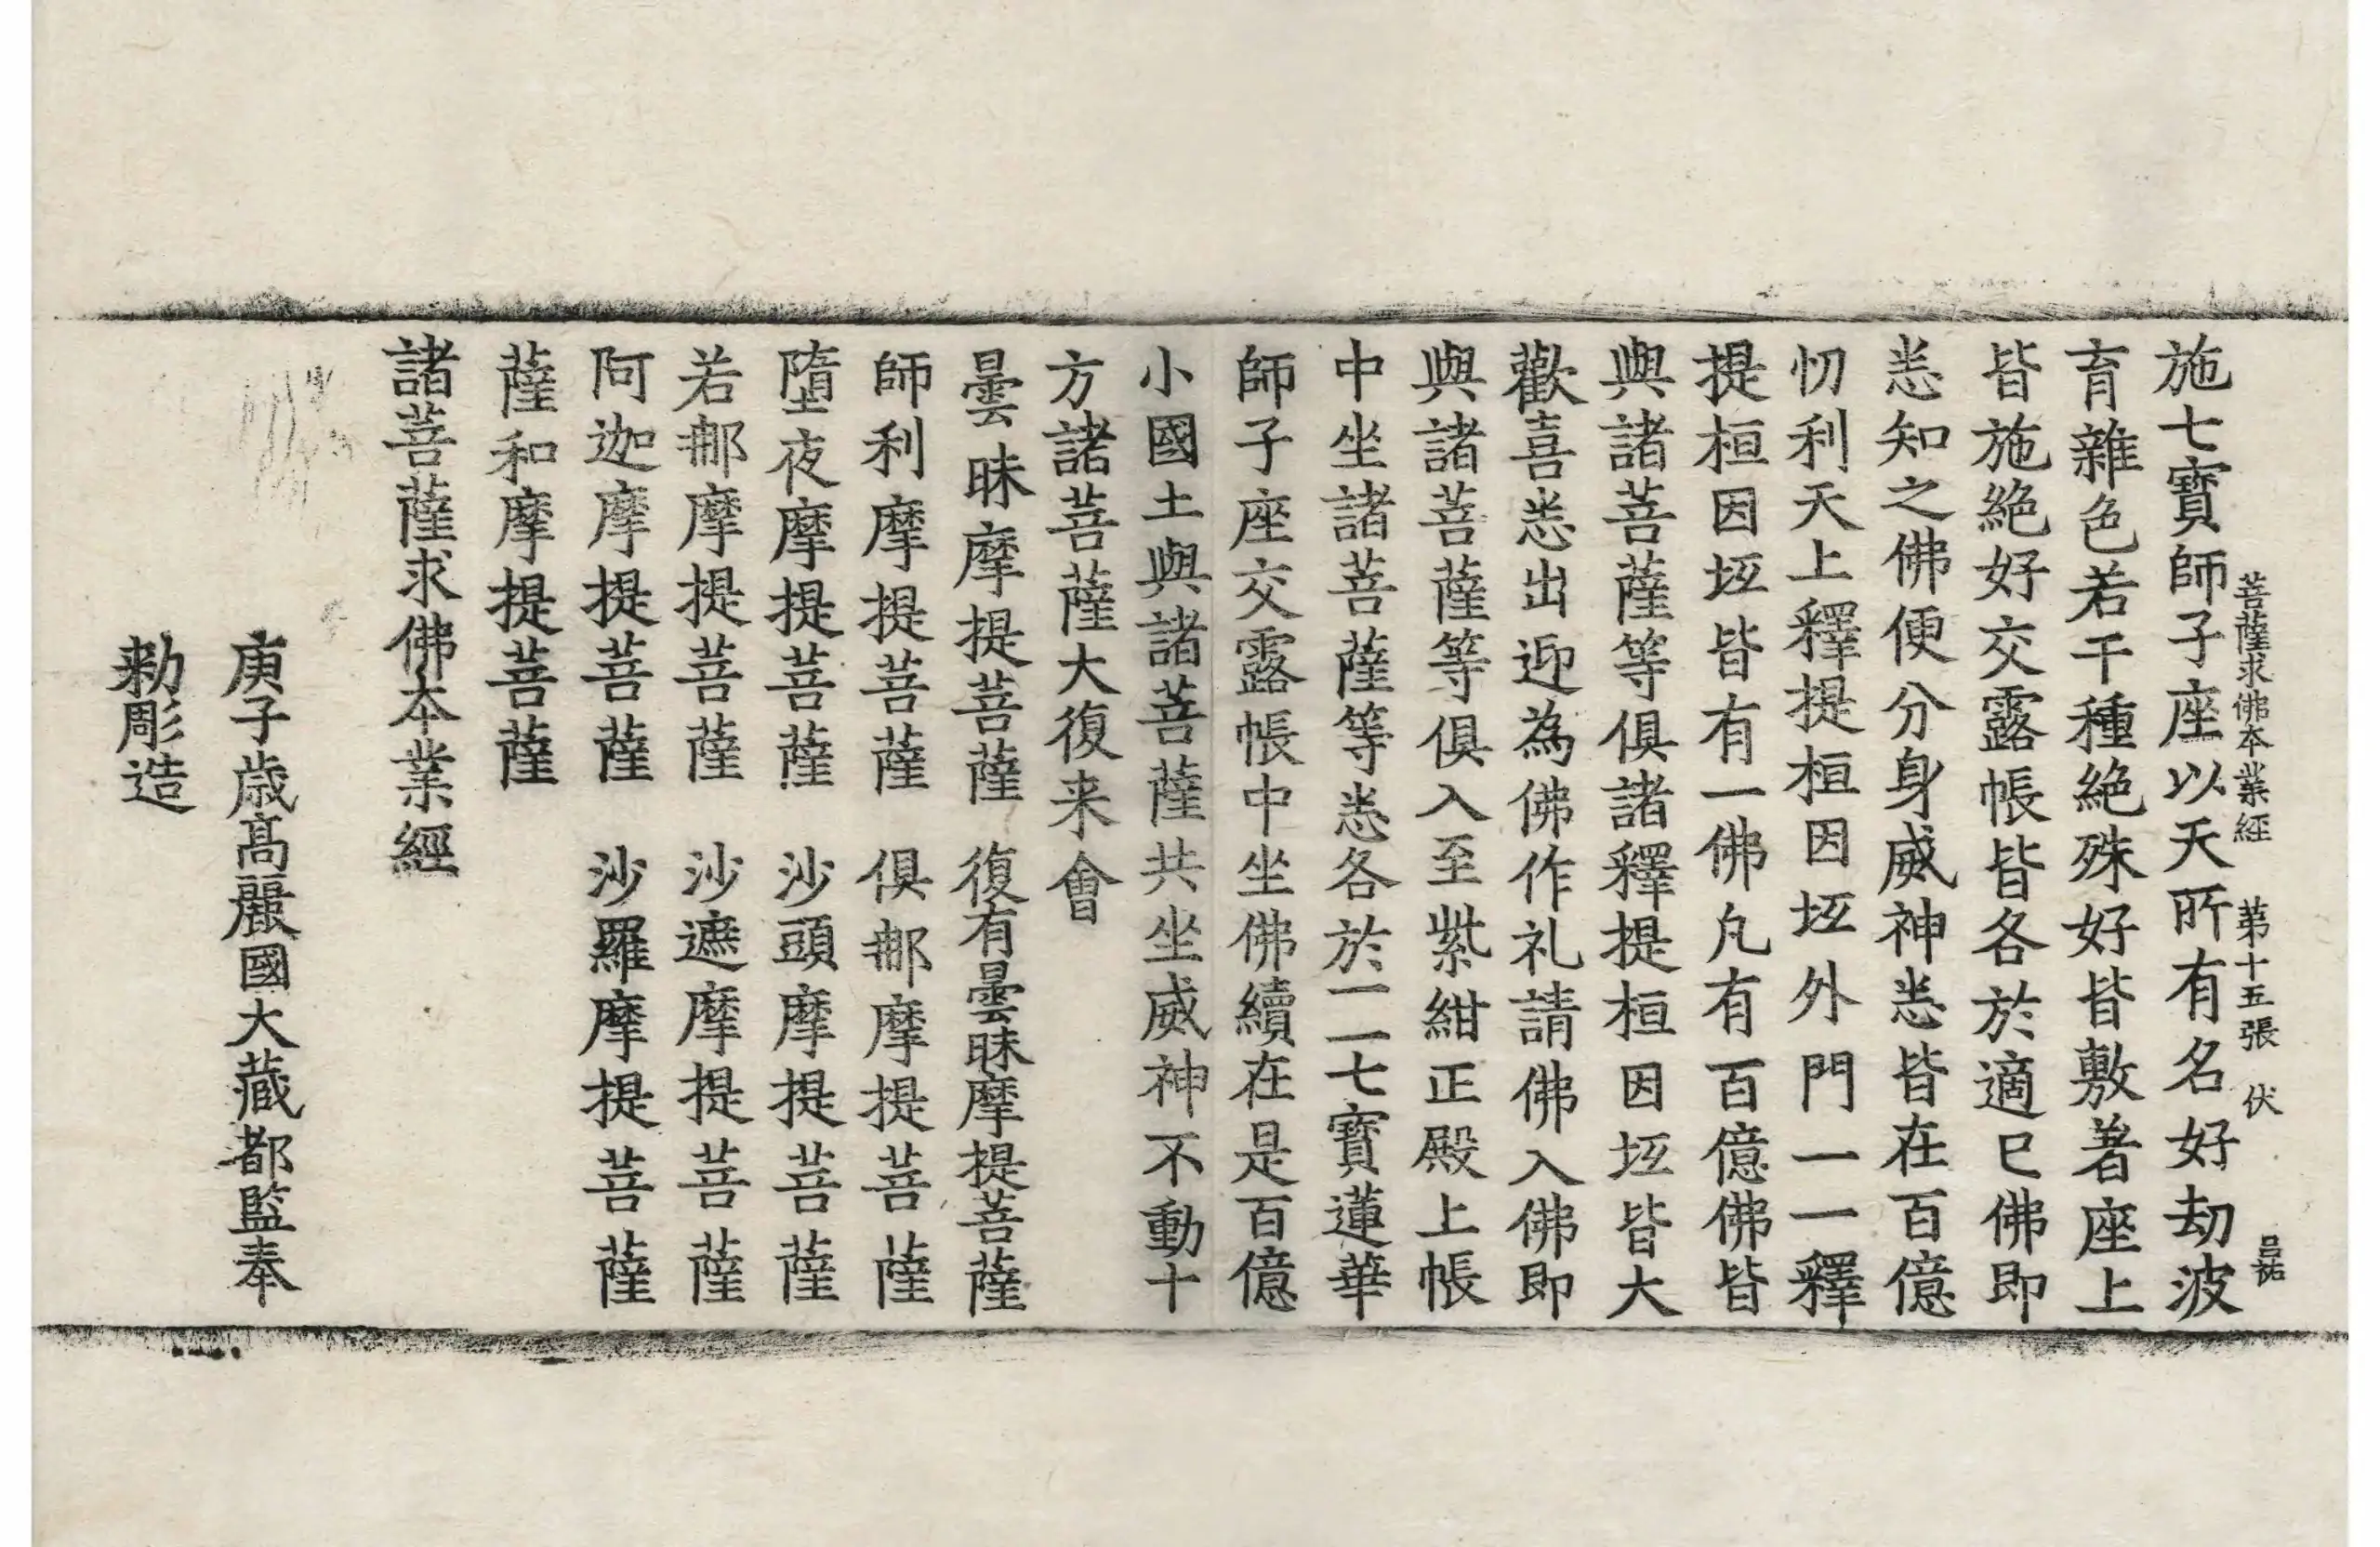 菩薩求佛本業經 第十五張 伏 呂祐
施七寶師子座以天所有名好劫波
育雜色若干種絶殊好皆敷著座上
皆施絶好交露帳皆各於適已佛即
悉知之佛便分身威神悉皆在百億
忉利天上釋提桓因坻外門一一釋
提桓因坻皆有一佛凡有百億佛皆
與諸菩薩等俱諸釋提桓因坻皆大
歡喜悉出迎為佛作礼請佛入佛即
與諸菩薩等俱入至紫紺正殿上帳
中坐諸菩薩等悉各於一一七寶蓮華
師子座交露帳中坐佛續在是百億
小國土與諸菩薩共坐威神不動十
方諸菩薩大復来會
曇昧摩提菩薩 復有曇昧摩提菩薩
師利摩提菩薩 俱那摩提菩薩
墮夜摩提菩薩 沙頭摩提菩薩
若那摩提菩薩 沙遮摩提菩薩
阿迦摩提菩薩 沙羅摩提菩薩
薩和摩提菩薩
諸菩薩求佛本業經
庚子歳高麗國大藏都監奉
勑彫造